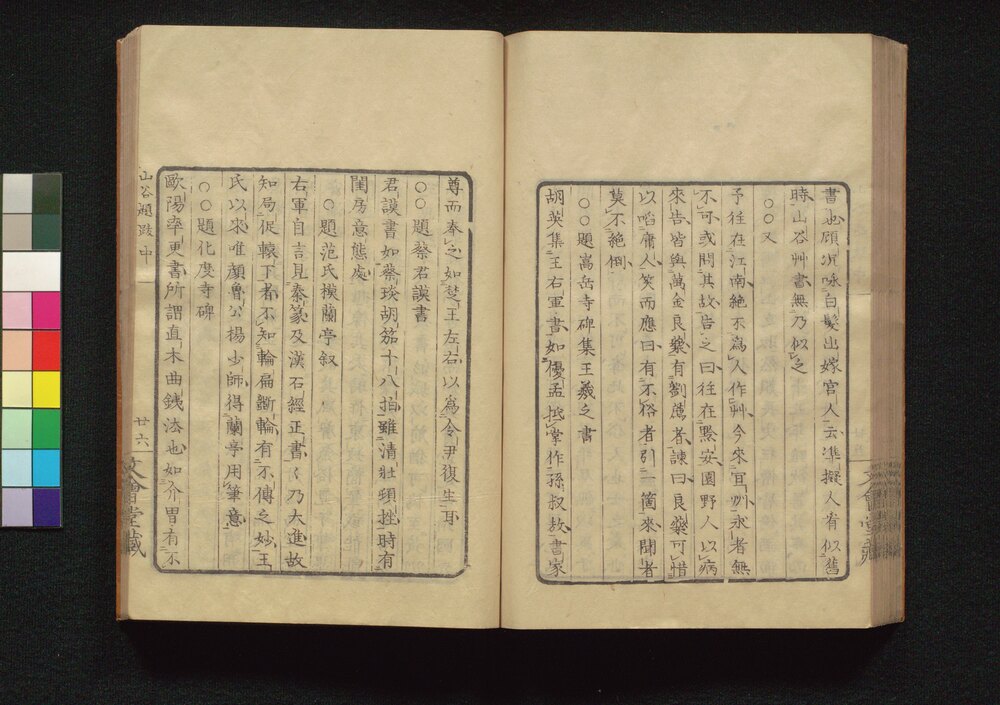 書也顧況咏白髮出嫁宮人云準擬人看似舊
時山谷艸書無乃似之
○○又
予往在江南絶不為人作艸今來宜州求者無
不可或問其故告之曰往在黔安園野人以病
來告皆與萬金良藥有劉薦者諫曰良藥可惜
以啗庸人笑而應曰有不俗者引一箇來聞者
莫不絶倒
○○題嵩岳寺碑集王羲之書
胡英集王右軍書如優孟抵掌作孫叔敖書家
尊而奉之如楚王左右以為令尹復生耳
○○題蔡君謨書
君謨書如蔡琰胡笳十八拍雖清壯頓挫時有
閨房意態處
○○題范氏模蘭亭叙
右軍自言見秦篆及漢石經正書〻乃大進故
知局促轅下者不知輪扁斲輪有不傳之妙王
氏以來唯顏魯公楊少師得蘭亭用筆意
○○題化度寺碑
歐陽率更書所謂直木曲鉄法也如介冑有不
山谷題跋中
廿六
文會堂藏
文會堂藏